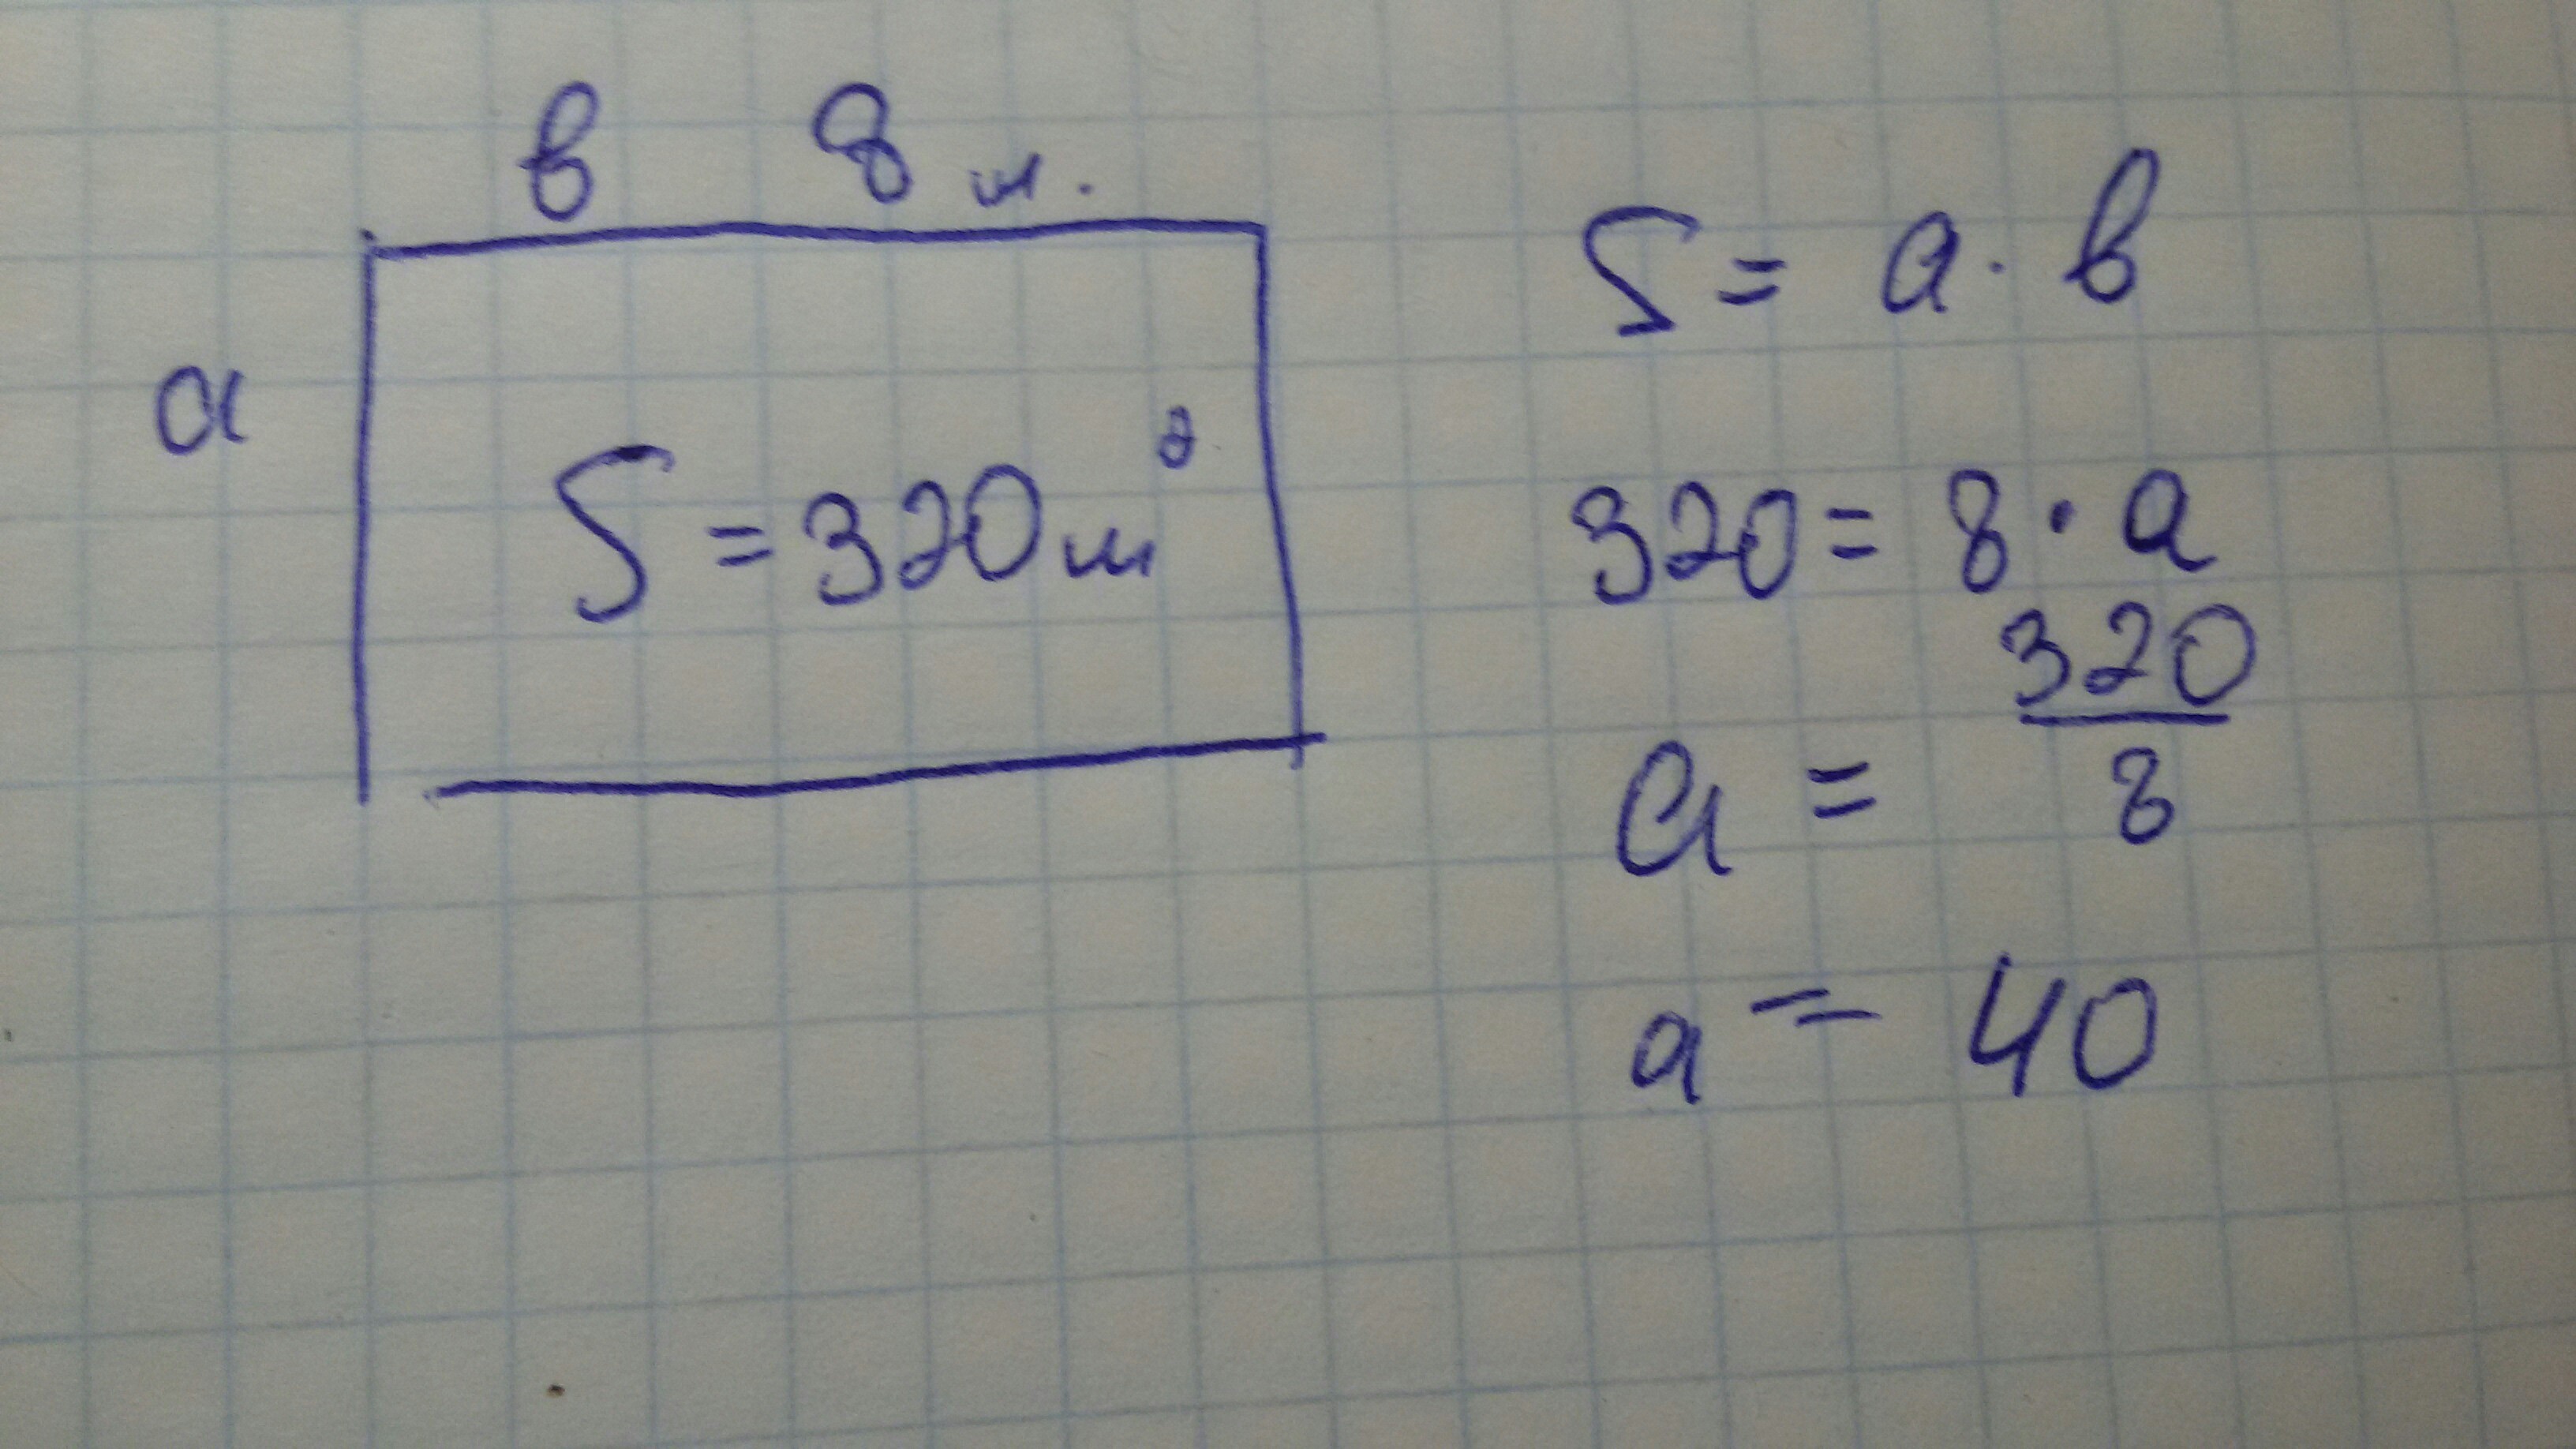 в 8 м.
а
S = 320 м²
S = а · в
320 = 8 · а
а = 320/8
а = 40